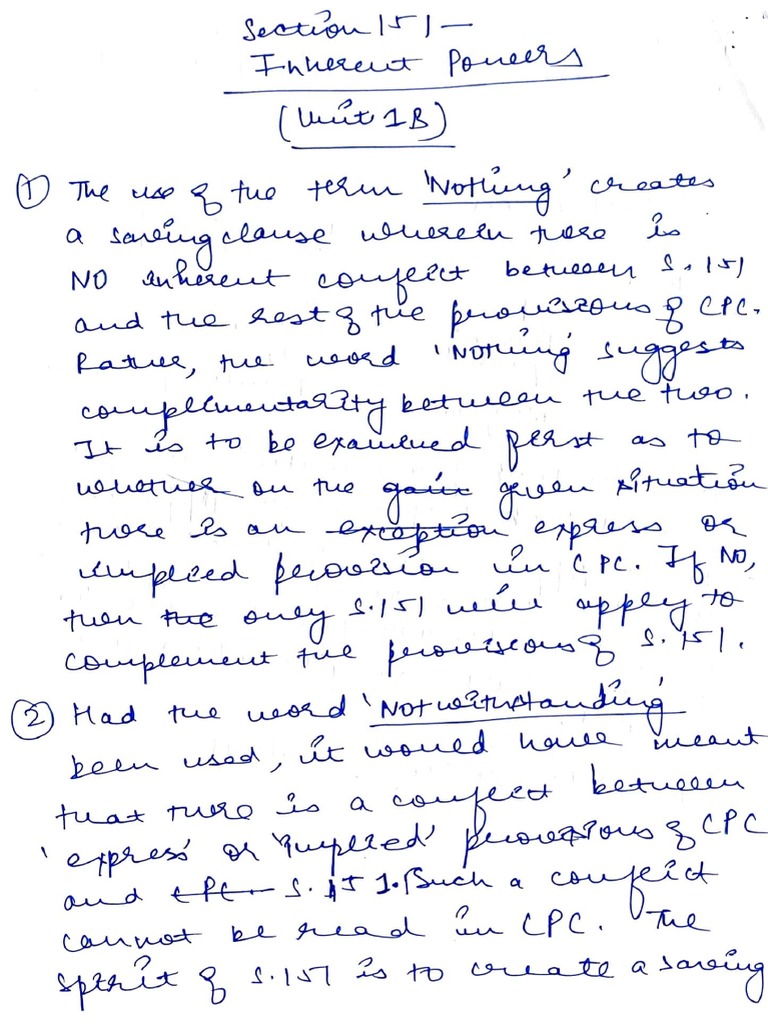 Section 151 —
Inherent Powers
(Unit 1B)
① The use of the term 'Nothing' creates
a saving clause wherein there is
NO inherent conflict between S. 151
and the rest of the provisions of CPC.
Rather, the word 'Nothing' suggests
complimentarity between the two.
It is to be examined first as to
whether on the given situation
there is an express or
implied provision in CPC. If NO,
then only S.151 will apply to
complement the provisions of S. 151.
② Had the word 'Notwithstanding'
been used, it would have meant
that there is a conflict between
'express' or 'implied' provisions of CPC
and S. 151. Such a conflict
cannot be read in CPC. The
spirit of S.151 is to create a saving